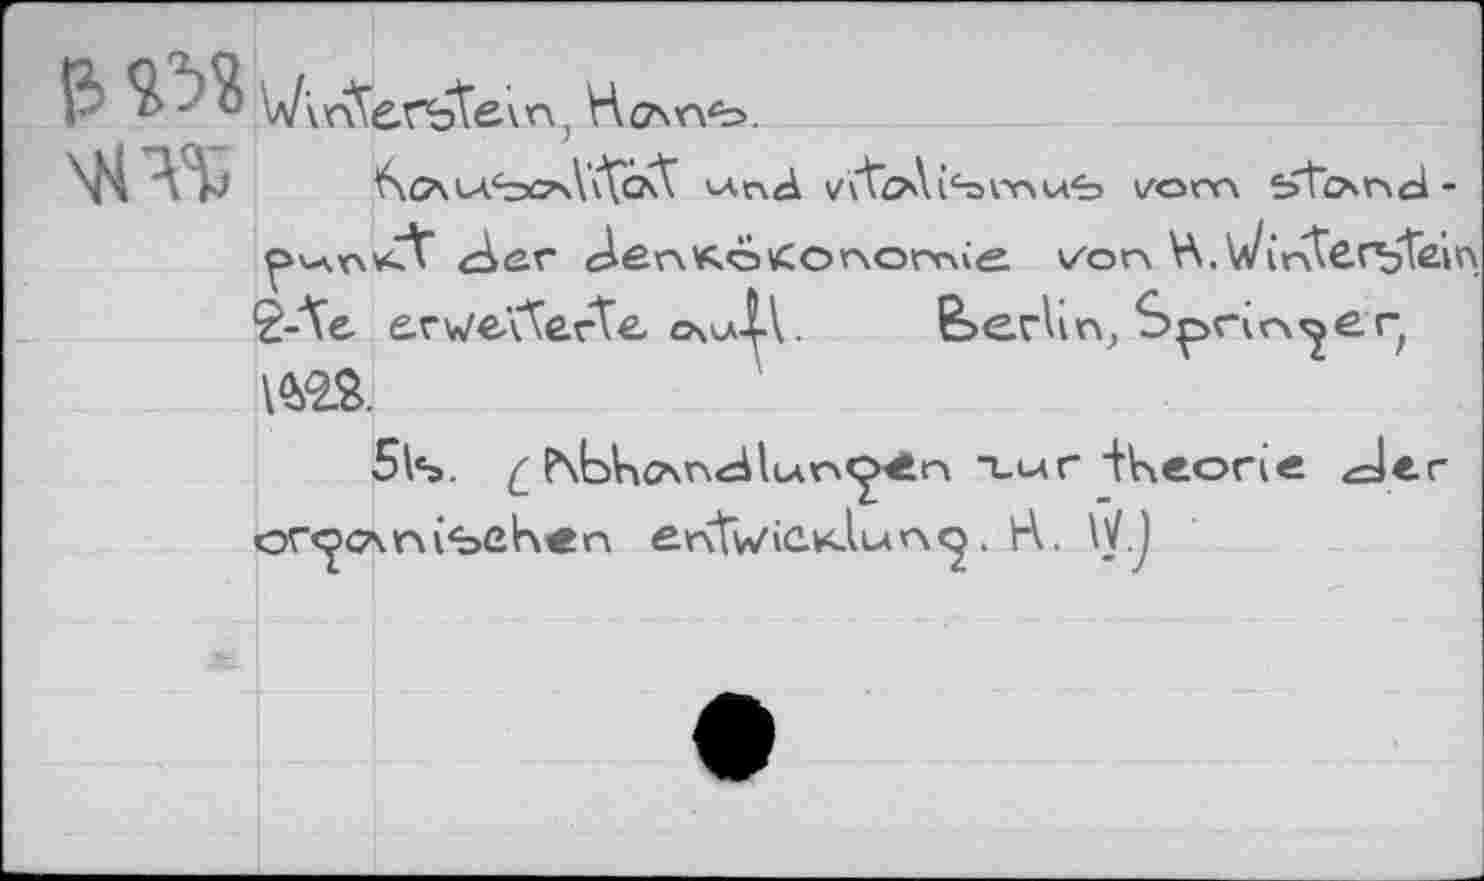 B 838 Winterstein, Hans.
W 73 Kausalität und vitalismus vom stand-
punkt der denkökonomie von H. Winterstein
2-te erweiterte aufl. Berlin, Springer,
1928.
51s. (Abhandlungen zur theorie der
organischen entwicklung. H. IV.)